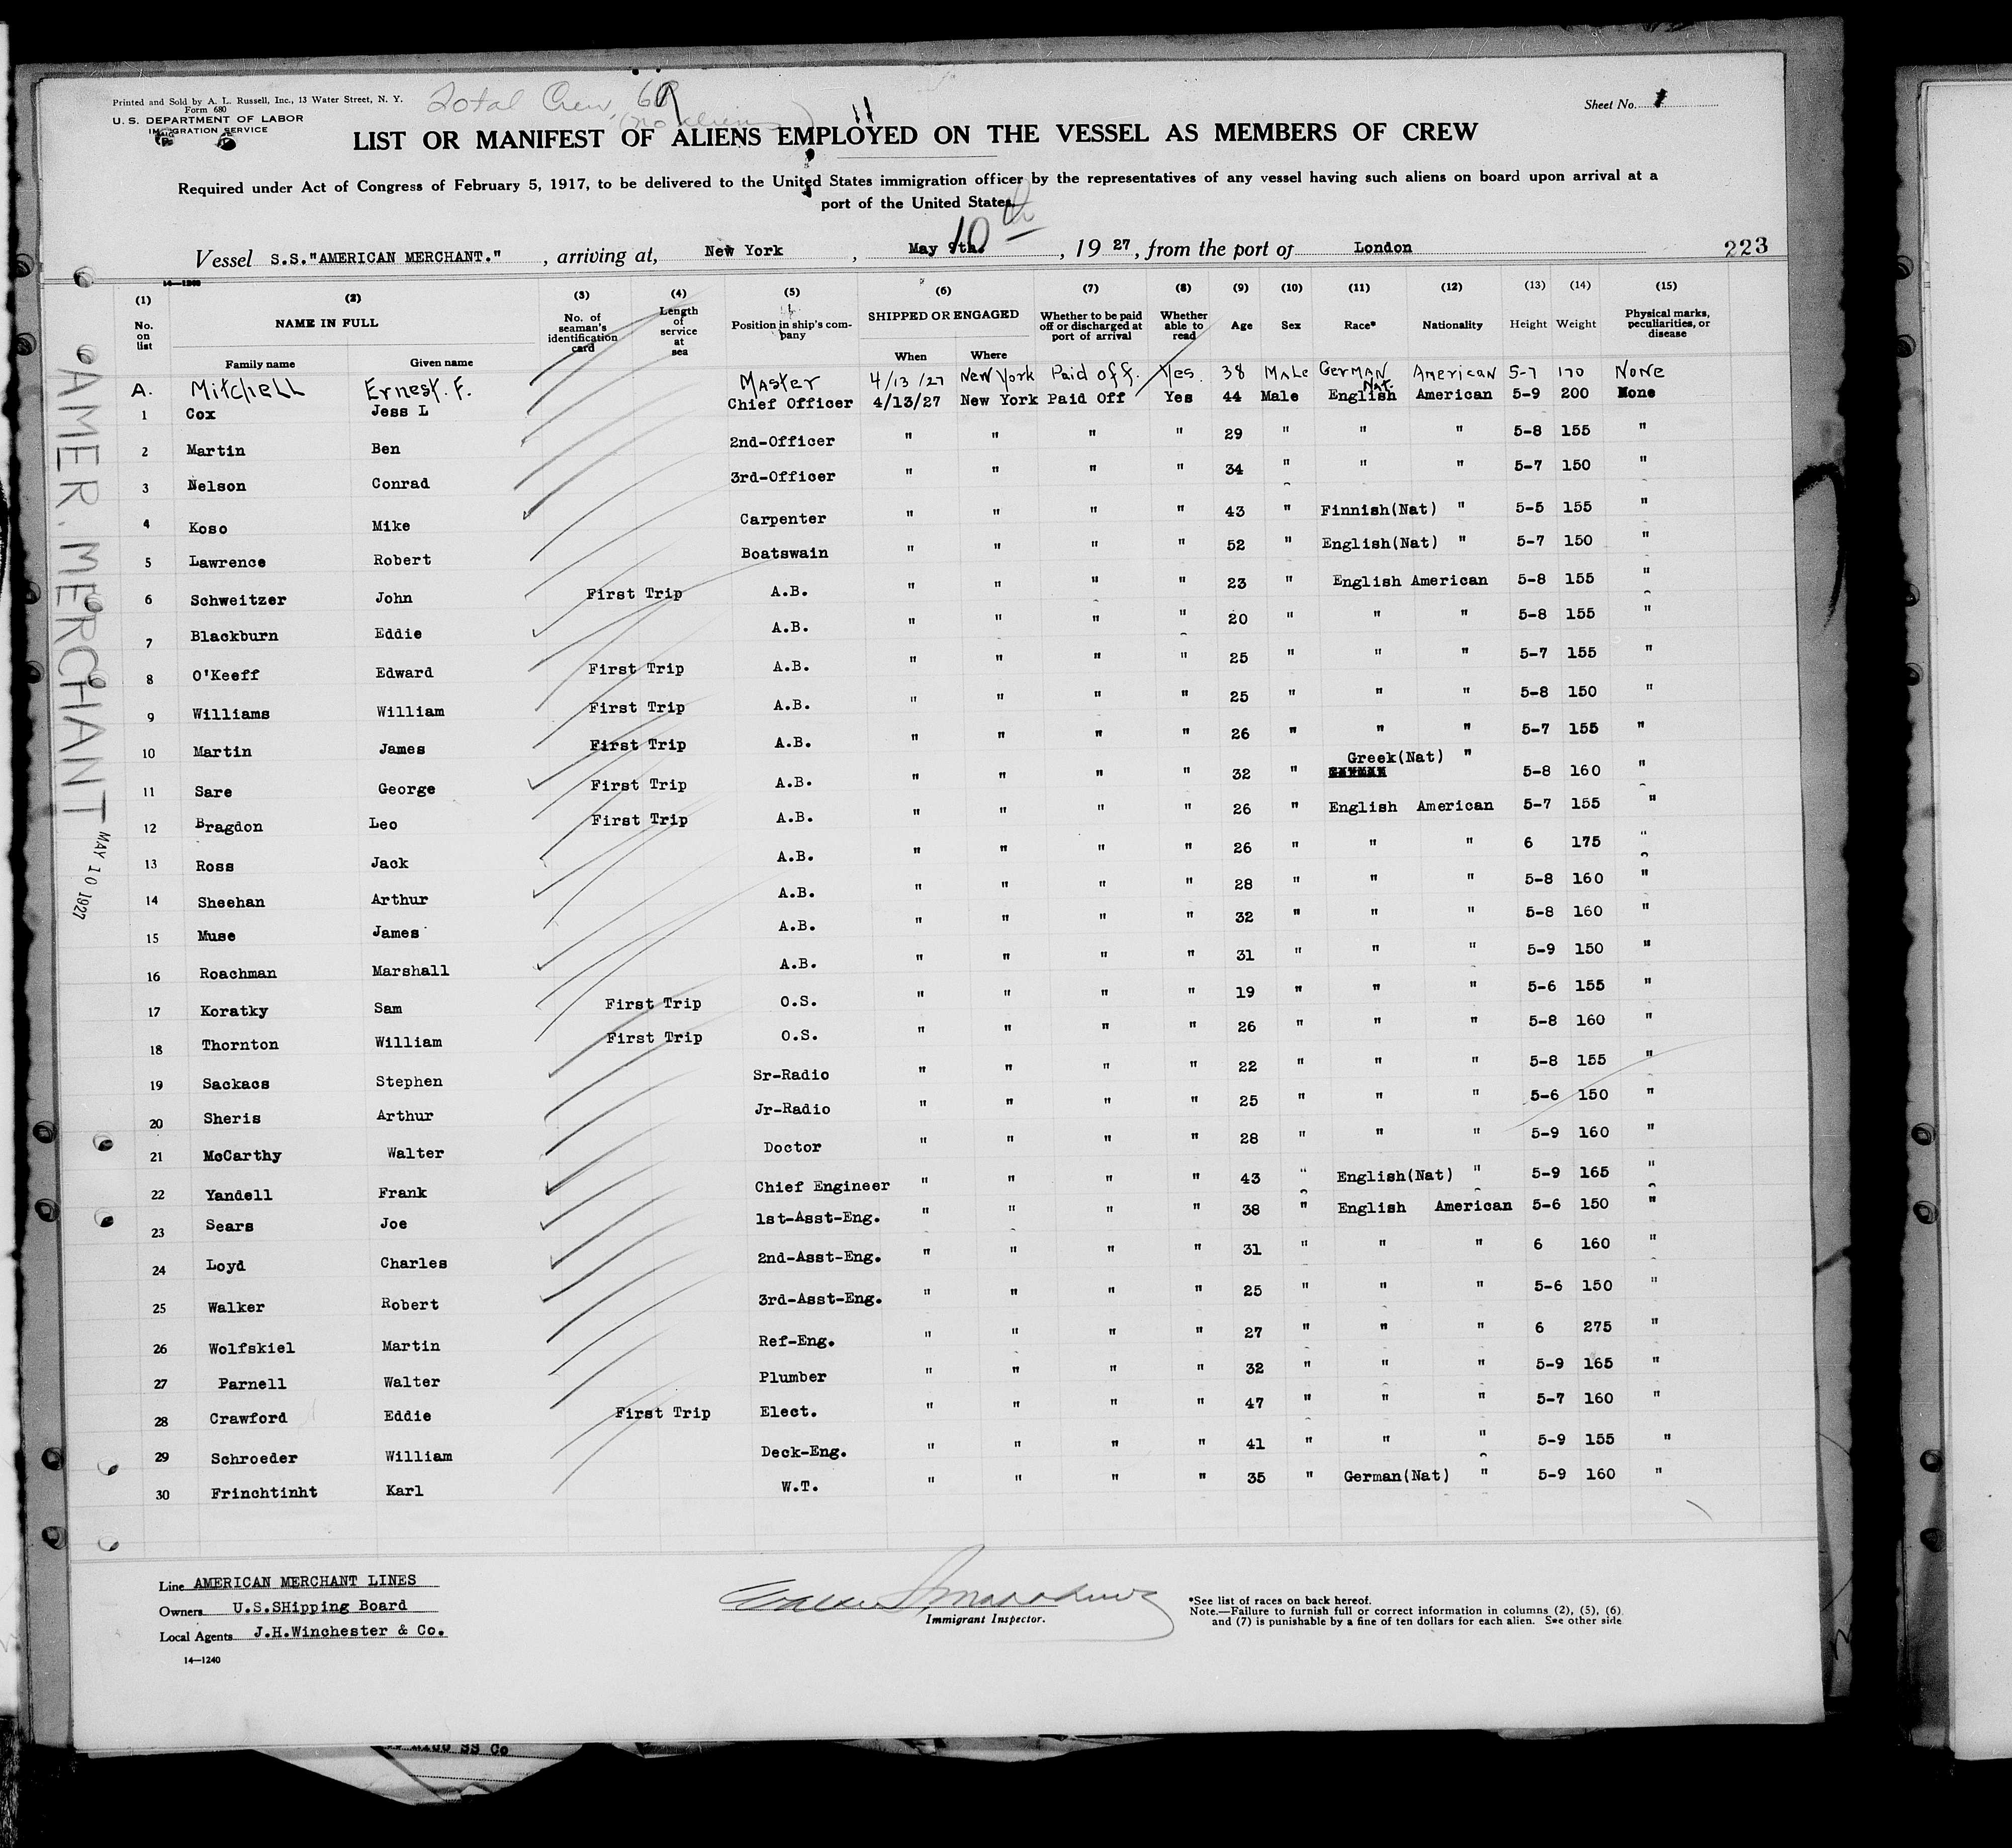 Printed and Sold by A. L. Russell, Inc., 13 Water Street, N. Y.
Form 680
U. S. DEPARTMENT OF LABOR
IMMIGRATION SERVICE
Total Crew, 69
(no aliens)
Sheet No. 1
LIST OR MANIFEST OF ALIENS EMPLOYED ON THE VESSEL AS MEMBERS OF CREW
Required under Act of Congress of February 5, 1917, to be delivered to the United States immigration officer by the representatives of any vessel having such aliens on board upon arrival at a
port of the United States
Vessel S.S."AMERICAN MERCHANT." , arriving at, New York , May 9th. 10th , 19 27 , from the port of London 223
14—1240
(1) (2) (3) (4) (5) (6) (7) (8) (9) (10) (11) (12) (13) (14) (15)
No. on list NAME IN FULL Family name Given name No. of seaman's identification card Length of service at sea Position in ship's company SHIPPED OR ENGAGED When Where Whether to be paid off or discharged at port of arrival Whether able to read Age Sex Race* Nationality Height Weight Physical marks, peculiarities, or disease
A. Mitchell Ernest. F. Master 4/13/27 New York Paid off. Yes. 38 Male German Nat. American 5-7 170 None
1 Cox Jess L Chief Officer 4/13/27 New York Paid Off Yes 44 Male English American 5-9 200 None
2 Martin Ben 2nd-Officer " " " " 29 " " " 5-8 155 "
3 Nelson Conrad 3rd-Officer " " " " 34 " " " 5-7 150 "
4 Koso Mike Carpenter " " " " 43 " Finnish(Nat) " 5-5 155 "
5 Lawrence Robert Boatswain " " " " 52 " English(Nat) " 5-7 150 "
6 Schweitzer John First Trip A.B. " " " " 23 " English American 5-8 155 "
7 Blackburn Eddie A.B. " " " " 20 " " " 5-8 155 "
8 O'Keeff Edward First Trip A.B. " " " " 25 " " " 5-7 155 "
9 Williams William First Trip A.B. " " " " 25 " " " 5-8 150 "
10 Martin James First Trip A.B. " " " " 26 " " " 5-7 155 "
11 Sare George First Trip A.B. " " " " 32 " Greek(Nat) " 5-8 160 "
12 Bragdon Leo First Trip A.B. " " " " 26 " English American 5-7 155 "
13 Ross Jack A.B. " " " " 26 " " " 6 175 "
14 Sheehan Arthur A.B. " " " " 28 " " " 5-8 160 "
15 Muse James A.B. " " " " 32 " " " 5-8 160 "
16 Roachman Marshall A.B. " " " " 31 " " " 5-9 150 "
17 Koratky Sam First Trip O.S. " " " " 19 " " " 5-6 155 "
18 Thornton William First Trip O.S. " " " " 26 " " " 5-8 160 "
19 Sackacs Stephen Sr-Radio " " " " 22 " " " 5-8 155 "
20 Sheris Arthur Jr-Radio " " " " 25 " " " 5-6 150 "
21 McCarthy Walter Doctor " " " " 28 " " " 5-9 160 "
22 Yandell Frank Chief Engineer " " " " 43 " English(Nat) " 5-9 165 "
23 Sears Joe 1st-Asst-Eng. " " " " 38 " English American 5-6 150 "
24 Loyd Charles 2nd-Asst-Eng. " " " " 31 " " " 6 160 "
25 Walker Robert 3rd-Asst-Eng. " " " " 25 " " " 5-6 150 "
26 Wolfskiel Martin Ref-Eng. " " " " 27 " " " 6 275 "
27 Parnell Walter Plumber " " " " 32 " " " 5-9 165 "
28 Crawford Eddie First Trip Elect. " " " " 47 " " " 5-7 160 "
29 Schroeder William Deck-Eng. " " " " 41 " " " 5-9 155 "
30 Frinchtinht Karl W.T. " " " " 35 " German(Nat) " 5-9 160 "
AMER. MERCHANT MAY 10 1927
Line AMERICAN MERCHANT LINES
Owners U.S.SHipping Board
Local Agents J.H.Winchester & Co.
14—1240
Immigrant Inspector.
*See list of races on back hereof.
Note.—Failure to furnish full or correct information in columns (2), (5), (6)
and (7) is punishable by a fine of ten dollars for each alien. See other side
SS Co